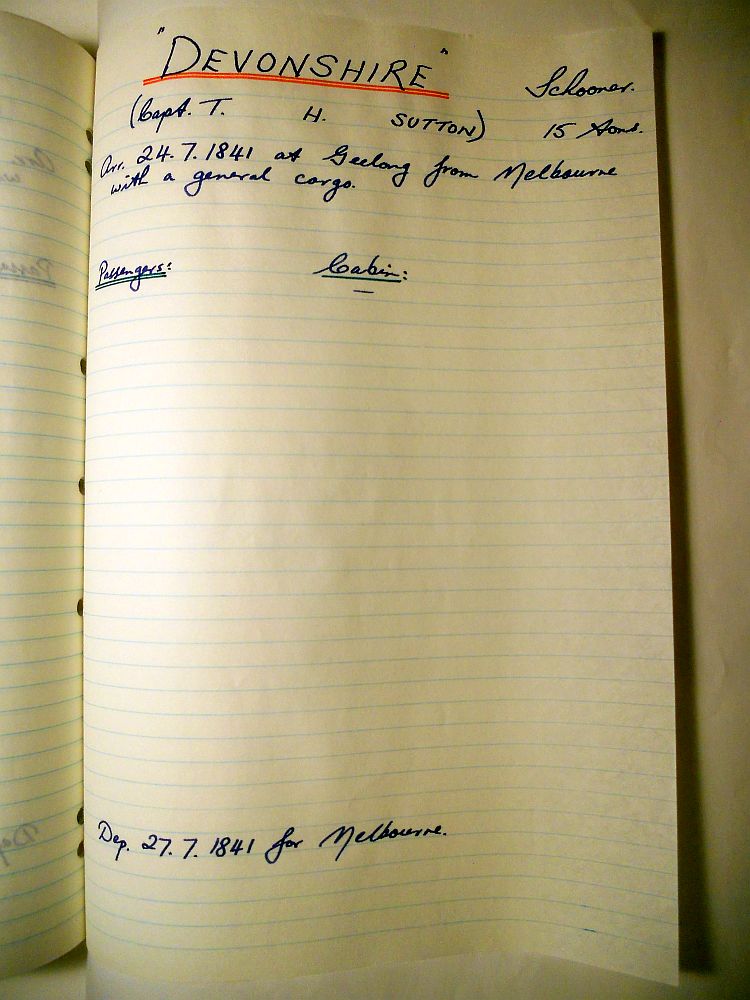 "DEVONSHIRE" Schooner.
(Capt. T. H. SUTTON) 15 tons.
Arr. 24.7.1841 at Geelong from Melbourne
with a general cargo.
Passengers: Cabin:
—
Dep. 27.7.1841 for Melbourne.